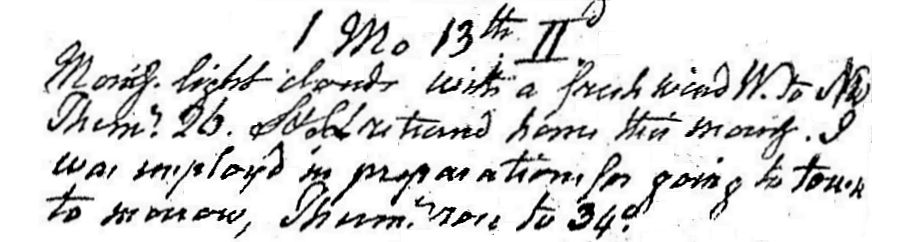 1 Mo 13th II d
Morng. light clouds with a fresh wind W. to NW
Therm.r 26. returnd home this morng. I
was employ'd in preparations for going to town
to morrow, Therm.r rose to 34°.